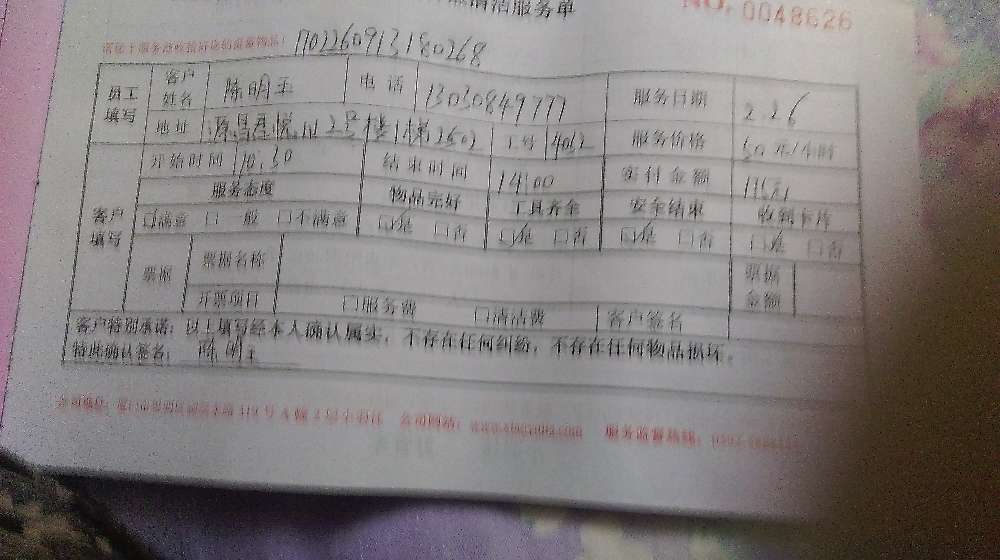 清洁服务单
NO. 0048626
1702260913180268
员工填写 客户姓名 陈明玉 电话 13030849777 服务日期 2.26
地址 2号楼1梯2502 工号 4062 服务价格 50元/小时
客户填写 开始时间 10:30 结束时间 14:00 实付金额 175元
服务态度 物品完好 工具齐全 安全结束 收到卡片
☑满意 □一般 □不满意 ☑是 □否 ☑是 □否 ☑是 □否 ☑是 □否
票据 票据名称 票据金额
开票项目 □服务费 □清洁费 客户签名
客户特别承诺:以上填写经本人确认属实,不存在任何纠纷,不存在任何物品损坏。
特此确认签名: 陈明玉
公司网站: 服务监督热线: